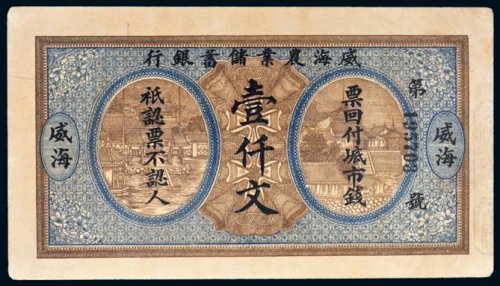 行銀蓄儲業農海威
第1137703號
威海
票回付城市錢
壹仟文
祇認票不認人
威海